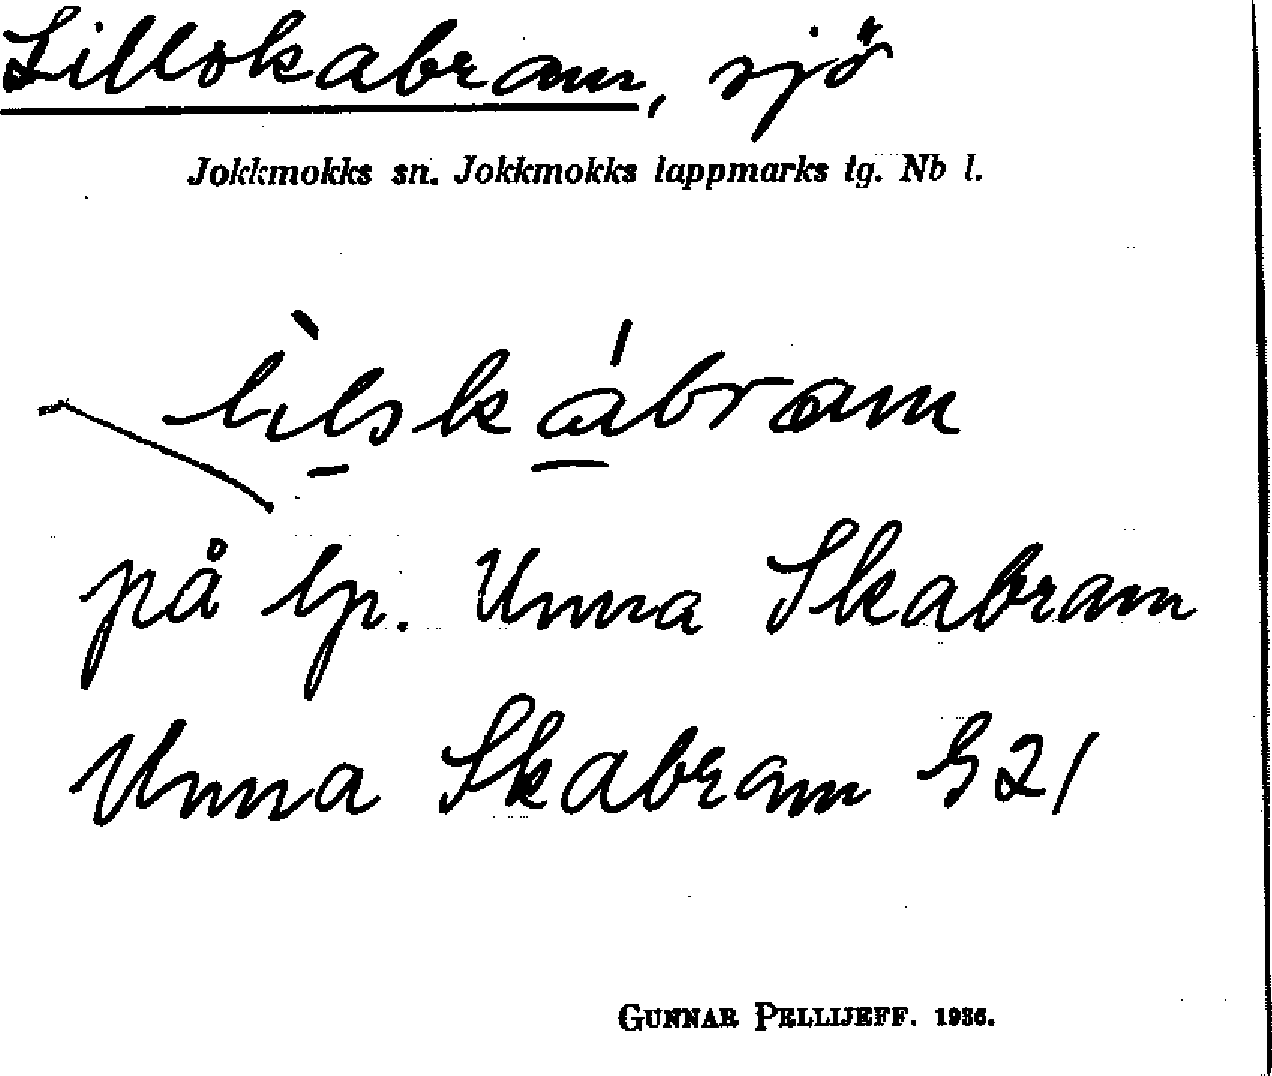 Lillskabram, sjö
Jokkmokks sn. Jokkmokks lappmarks tg. Nb l.
lìlskábram
på lp. Unna Skabram
Unna Skabram G21
GUNNAR PELLIJEFF. 1936.